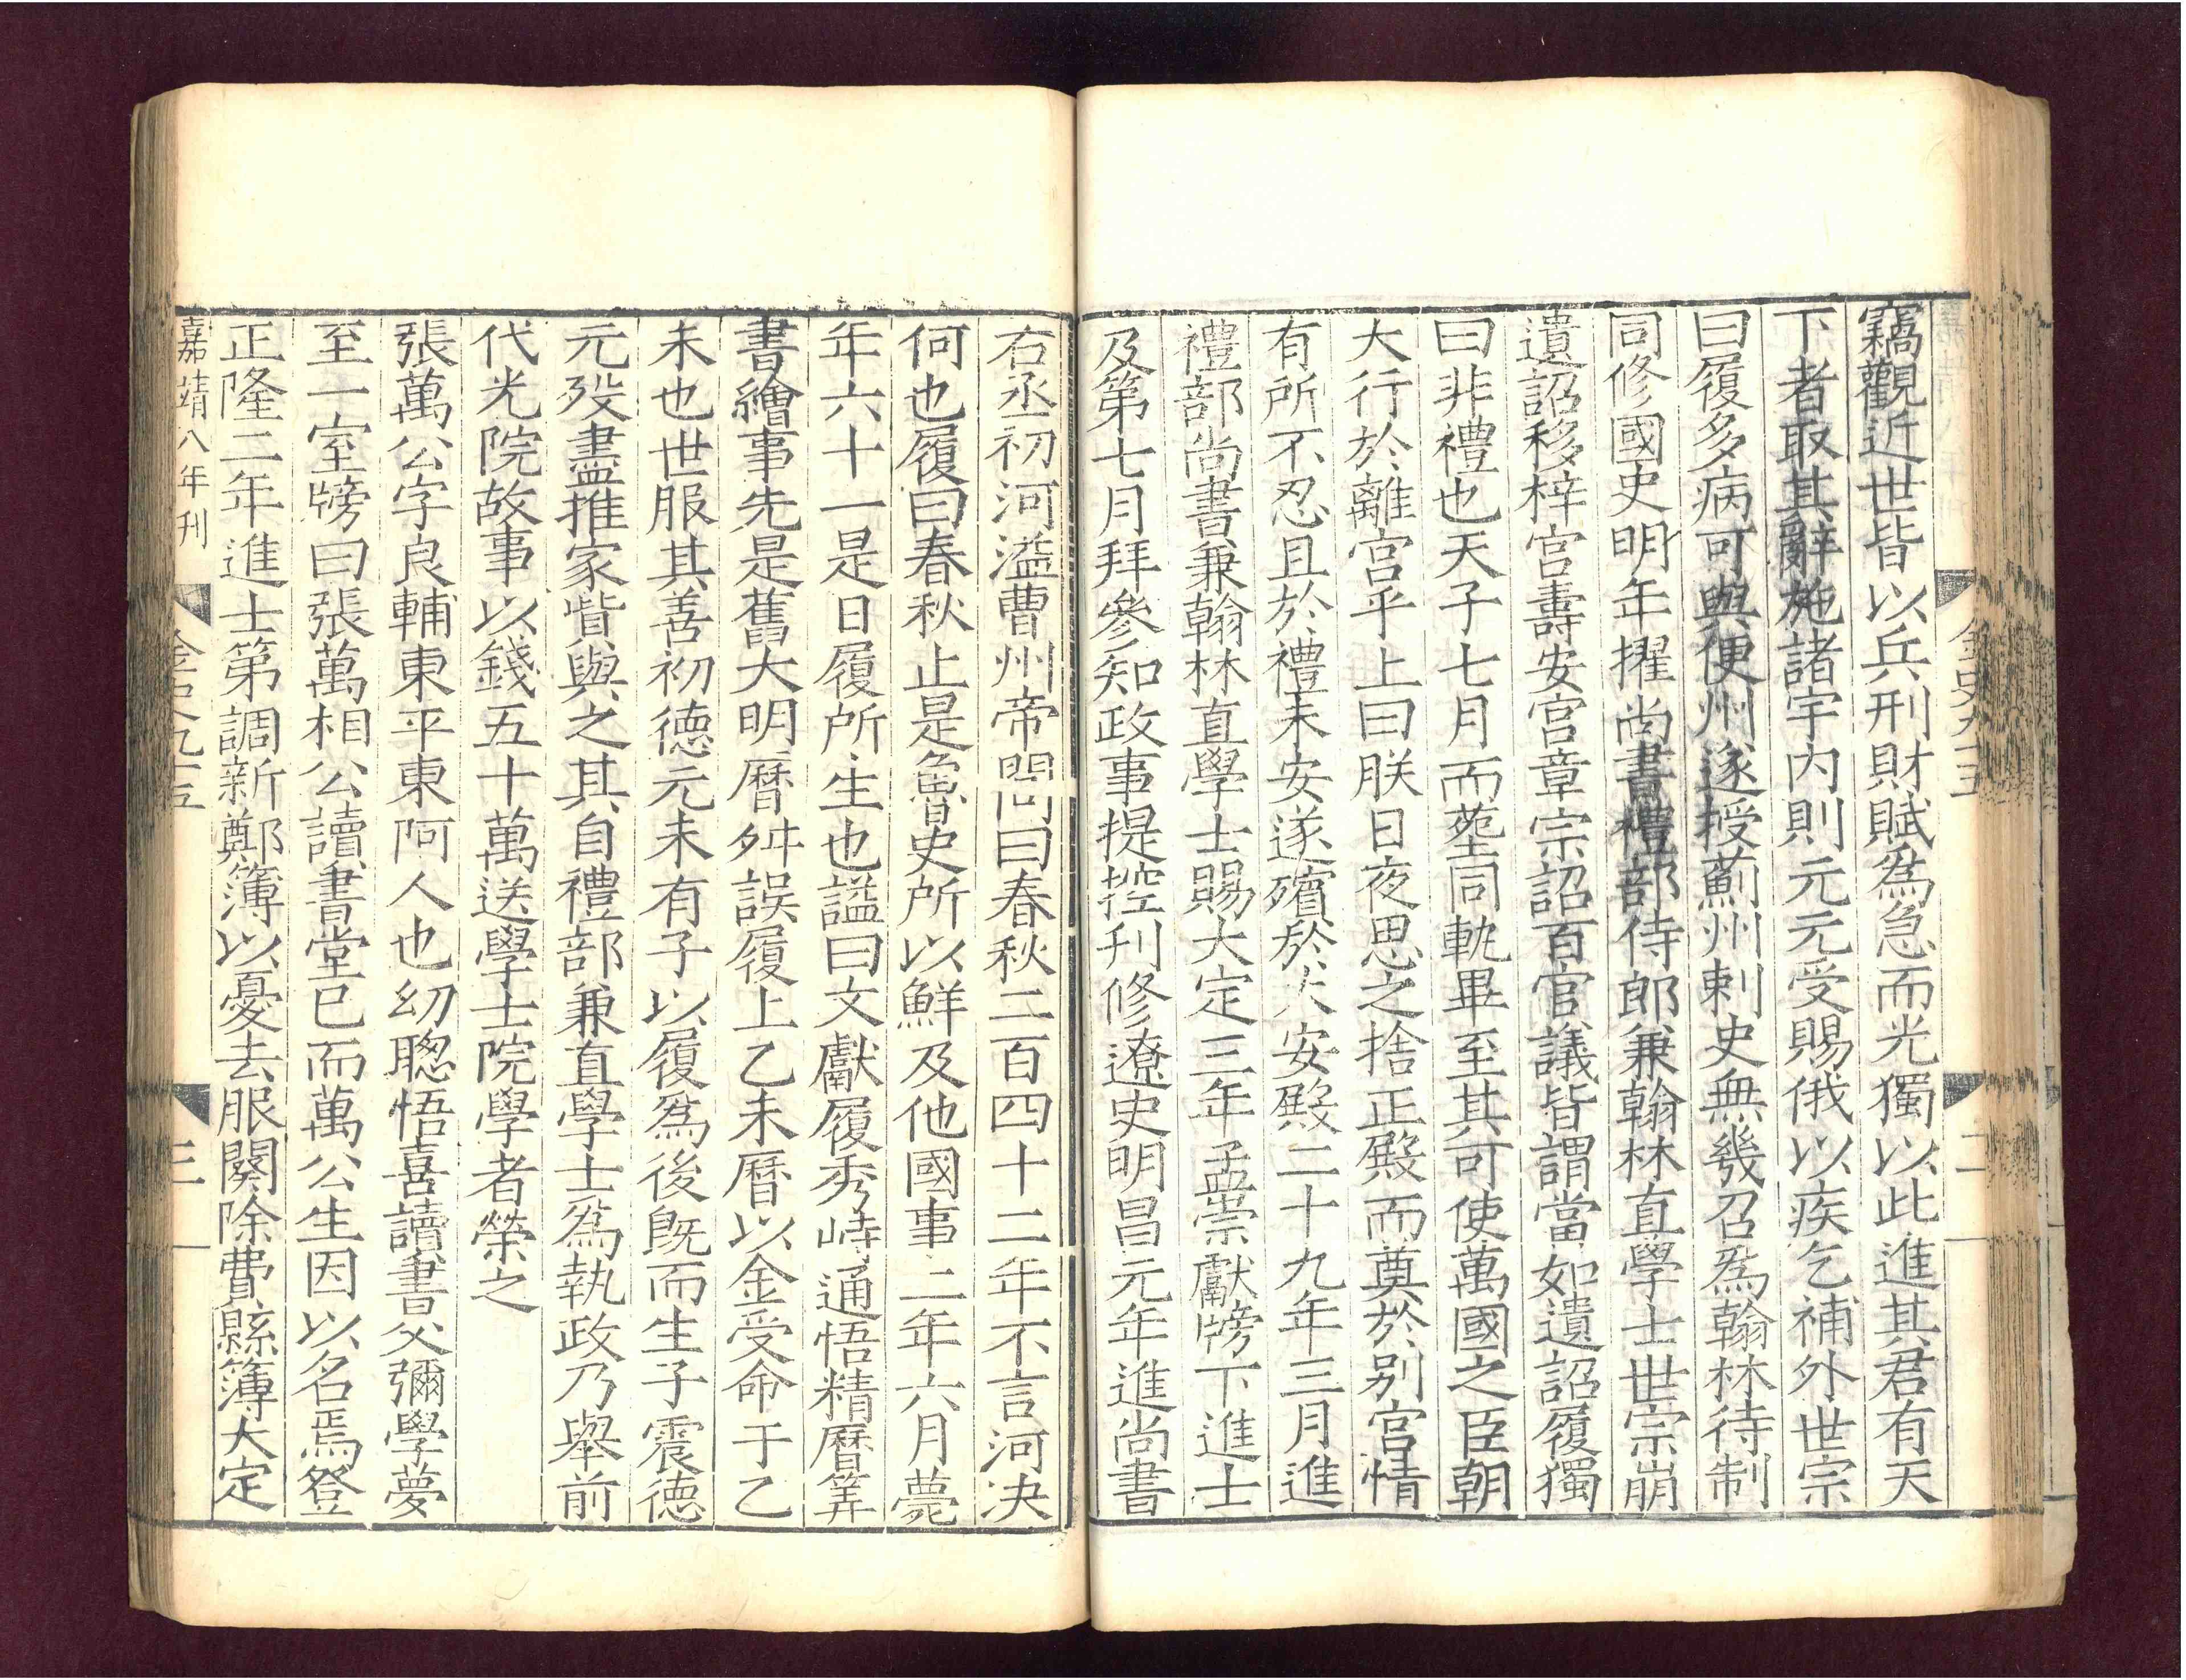 竊觀近世皆以兵刑財賦為急而光獨以此進其君有天
下者取其辭施諸宇内則元元受賜俄以疾乞補外世宗
曰履多病可與便州遂授薊州刺史無幾召爲翰林待制
同修國史明年擢尚書禮部侍郎兼翰林直學士世宗崩
遺詔移梓宮壽安宮章宗詔百官議皆謂當如遺詔履獨
曰非禮也天子七月而塟同軌畢至其可使萬國之臣朝
大行於離宮乎上曰朕日夜思之捨正殿而奠於别宮情
有所不忍且於禮未安遂殯於大安殿二十九年三月進
禮部尚書兼翰林直學士賜大定三年孟崇獻牓下進士
及第七月拜參知政事提控刊修遼史明昌元年進尚書
右丞初河溢曹州帝問曰春秋二百四十二年不言河決
何也履曰春秋止是魯史所以鮮及他國事二年六月薨
年六十一是日履所生也謚曰文獻履秀峙通悟精曆筭
書繪事先是舊大明曆舛誤履上乙未曆以金受命于乙
未也世服其善初德元未有子以履爲後既而生子震德
元歿盡推家貲與之其自禮部兼直學士爲執政乃舉前
代光院故事以錢五十萬送學士院學者榮之
張萬公字良輔東平東阿人也幼聰悟喜讀書父彌學夢
至一室牓曰張萬相公讀書堂已而萬公生因以名焉登
正隆二年進士第調新鄭簿以憂去服闋除費縣簿大定
嘉靖八年刊
金史九十五
三